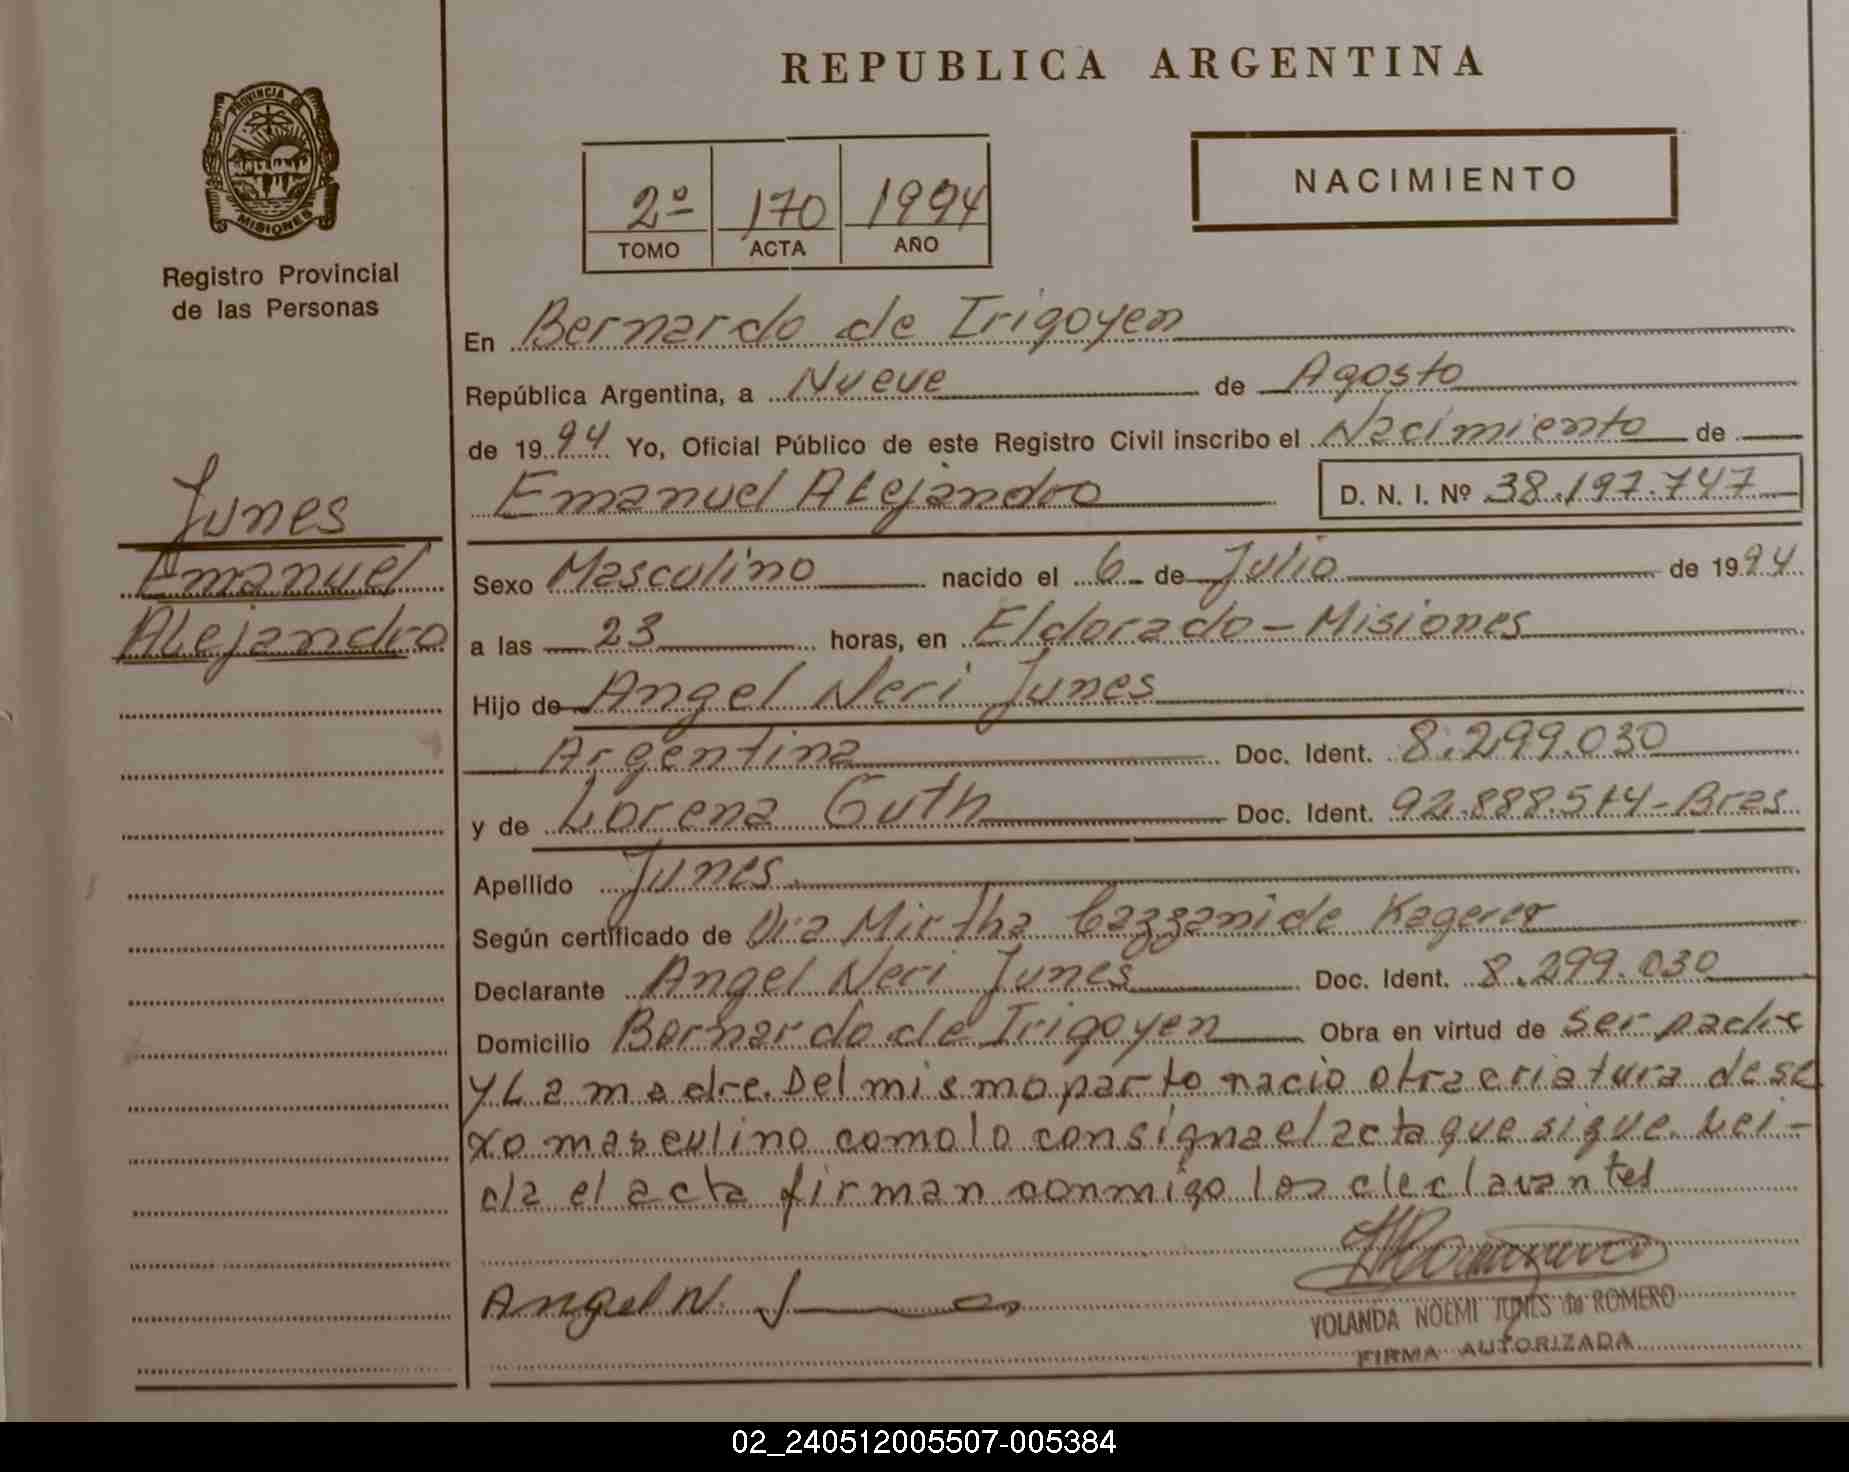 REPUBLICA ARGENTINA
PROVINCIA DE
MISIONES
Registro Provincial
de las Personas
2º 170 1994
TOMO ACTA AÑO
NACIMIENTO
En Bernardo de Irigoyen
República Argentina, a Nueve de Agosto
de 1994 Yo, Oficial Público de este Registro Civil inscribo el Nacimiento de
Emanuel Alejandro D. N. I. Nº 38.197.747
Junes
Emanuel
Alejandro
Sexo Masculino nacido el 6 de Julio de 1994
a las 23 horas, en Eldorado - Misiones
Hijo de Angel Neri Junes
Argentina Doc. Ident. 8.299.030
y de Lorena Guth Doc. Ident. 92.888.514-Bras
Apellido Junes
Según certificado de Dra Mirtha Cazzani de Kagerer
Declarante Angel Neri Junes Doc. Ident. 8.299.030
Domicilio Bernardo de Irigoyen Obra en virtud de ser padre
y La madre. Del mismo parto nacio otra criatura de se
xo masculino como lo consigna el acta que sigue. Lei-
da el acta firman conmigo los declarantes
Angel N. Junes
YOLANDA NOEMI JUNES de ROMERO
FIRMA AUTORIZADA
02_240512005507-005384